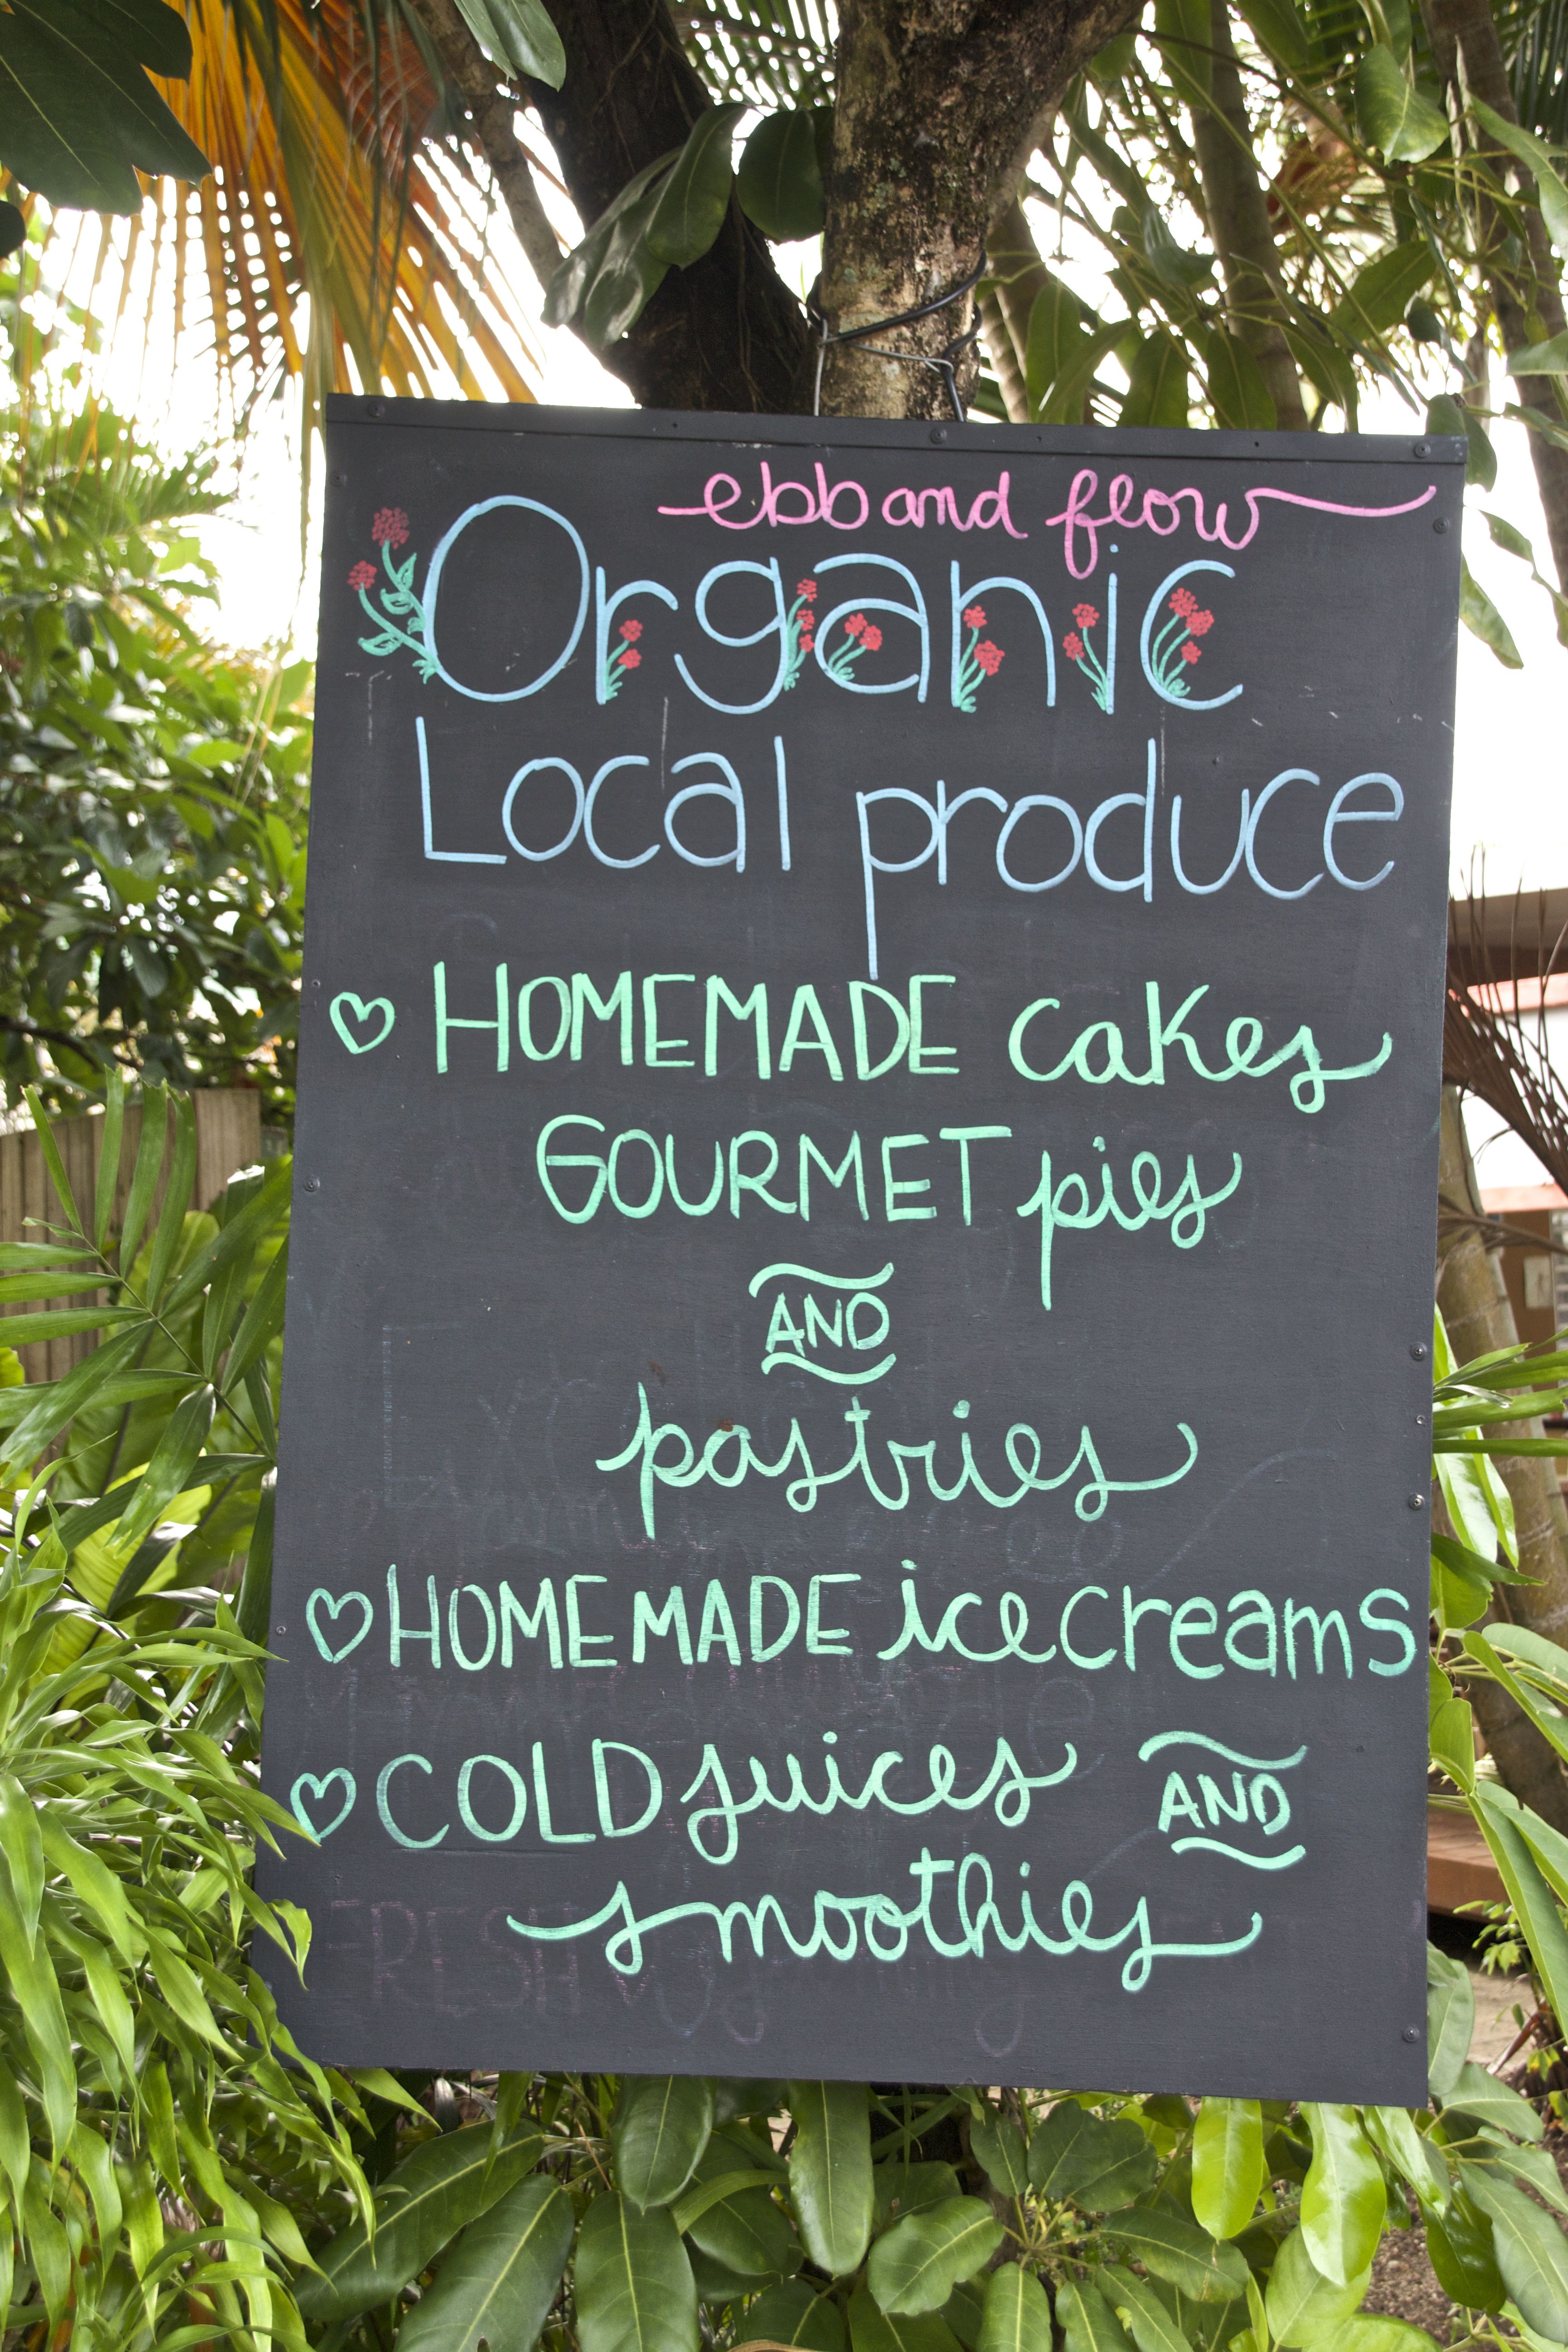 ebb and flow
Organic
Local produce
♡ HOMEMADE cakes
GOURMET pies
AND
pastries
♡ HOMEMADE ice creams
♡ COLD juices AND
smoothies
FRESH